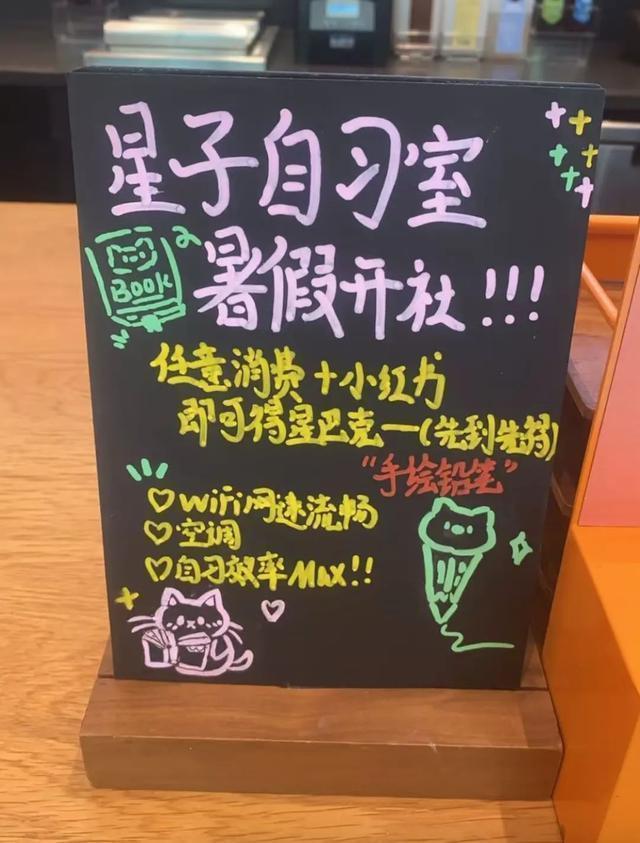 星子自习室
BOOK
暑假开社!!!
任意消费+小红书
即可得星巴克一(先到先得)
"手绘铅笔"
♡WiFi网速流畅
♡空调
♡自习效率Max!!